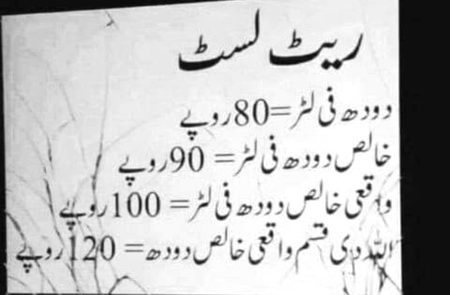 ریٹ لسٹ
دودھ فی لٹر=80روپے
خالص دودھ فی لٹر= 90روپے
واقعی خالص دودھ فی لٹر= 100روپے
اللہ دی قسم واقعی خالص دودھ= 120روپے